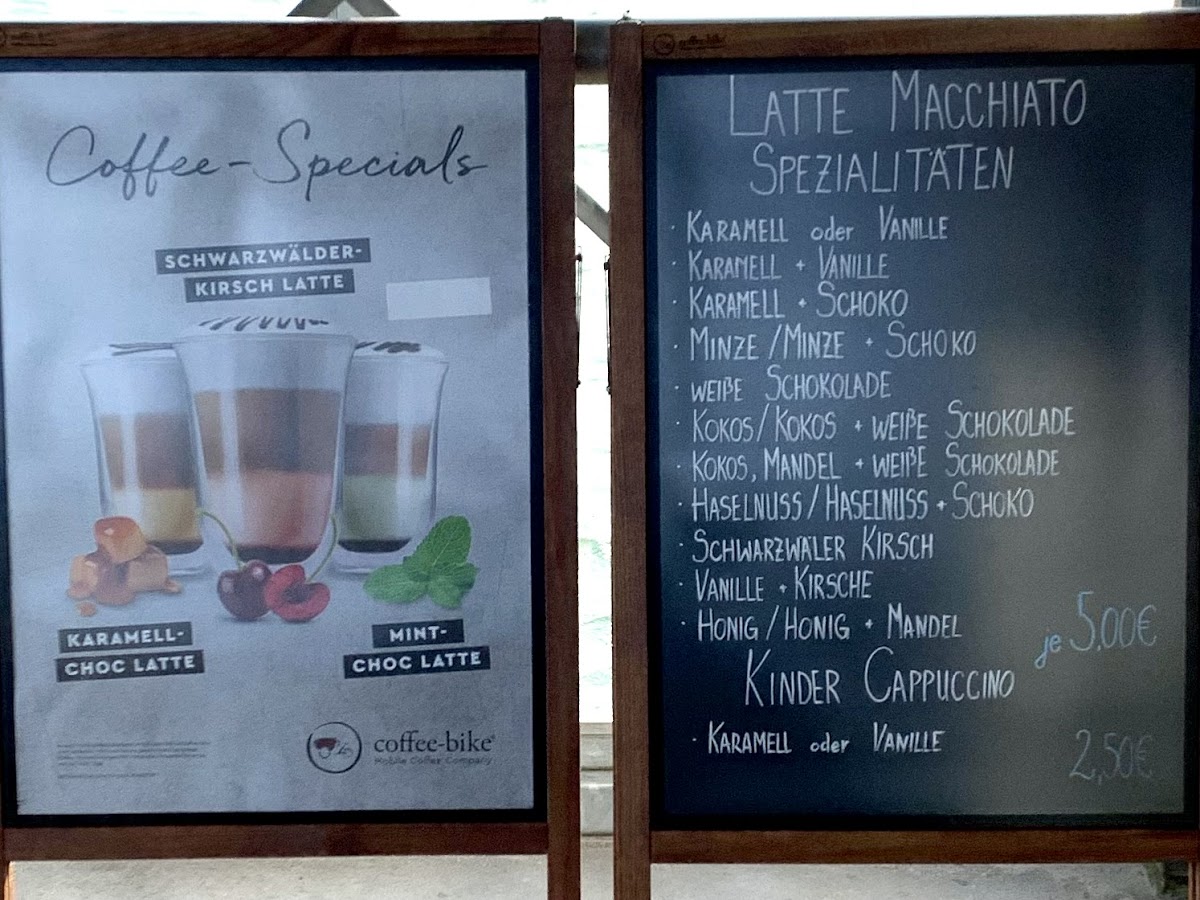 Coffee-Specials
SCHWARZWÄLDER-
KIRSCH LATTE
KARAMELL-
CHOC LATTE
MINT-
CHOC LATTE
coffee-bike®
Mobile Coffee Company
LATTE MACCHIATO
SPEZIALITÄTEN
· KARAMELL oder VANILLE
· KARAMELL + VANILLE
· KARAMELL + SCHOKO
· MINZE / MINZE + SCHOKO
· WEIßE SCHOKOLADE
· KOKOS / KOKOS + WEIßE SCHOKOLADE
· KOKOS, MANDEL + WEIßE SCHOKOLADE
· HASELNUSS / HASELNUSS + SCHOKO
· SCHWARZWÄLER KIRSCH
· VANILLE + KIRSCHE
· HONIG / HONIG + MANDEL
je 5,00€
KINDER CAPPUCCINO
· KARAMELL oder VANILLE
2,50€